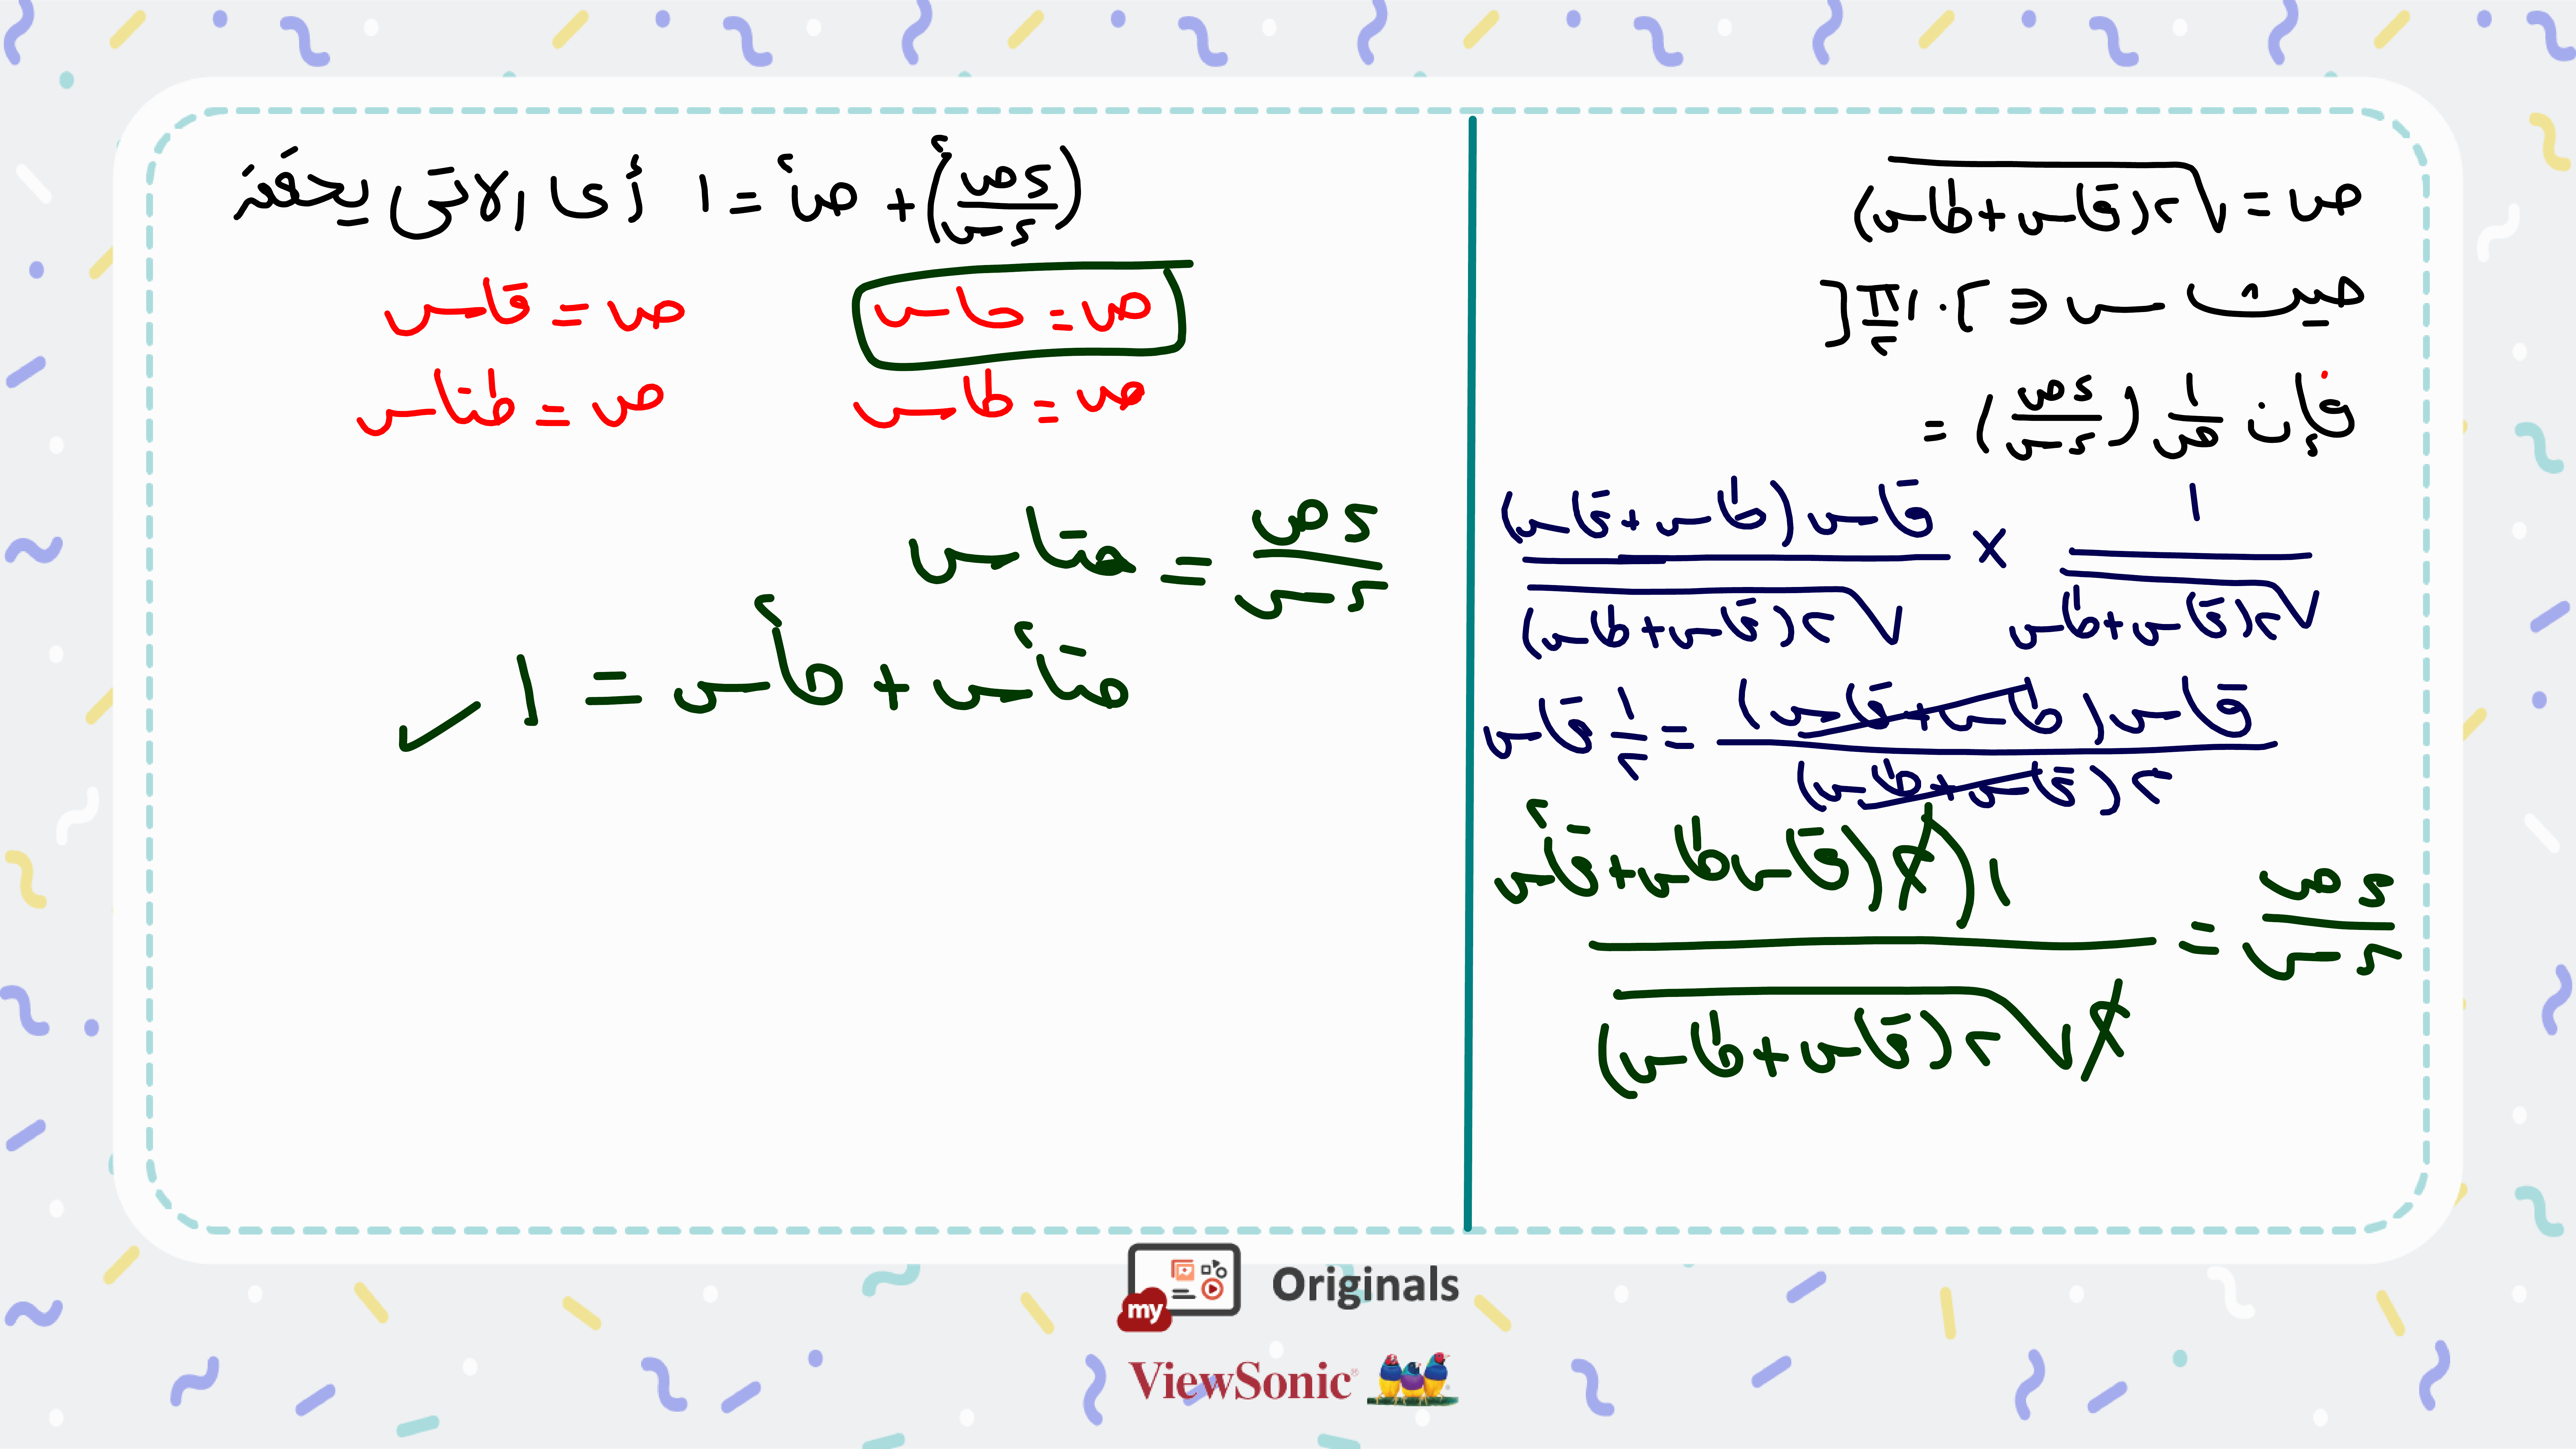 ص = √٢(قاس + طاس)
حيث س ∈ ]٠ ، π/٢[
فإن ١/ص (دص/دس) =
١/√٢(قاس+طاس) × قاس(طاس+قاس)/√٢(قاس+طاس)
قاس(طاس+قاس)/٢(قاس+طاس) = ١/٢ قاس
دص/دس = ١(٢)(قاس طاس+قا٢س)/٢√٢(قاس+طاس)
(دص/دس)٢ + ص٢ = ١ أى الاتى يحققه
ص = حاس ص = قاس
ص = طاس ص = طتاس
دص/دس = حتاس
حتا٢س + حا٢س = ١ ✓
my Originals
ViewSonic